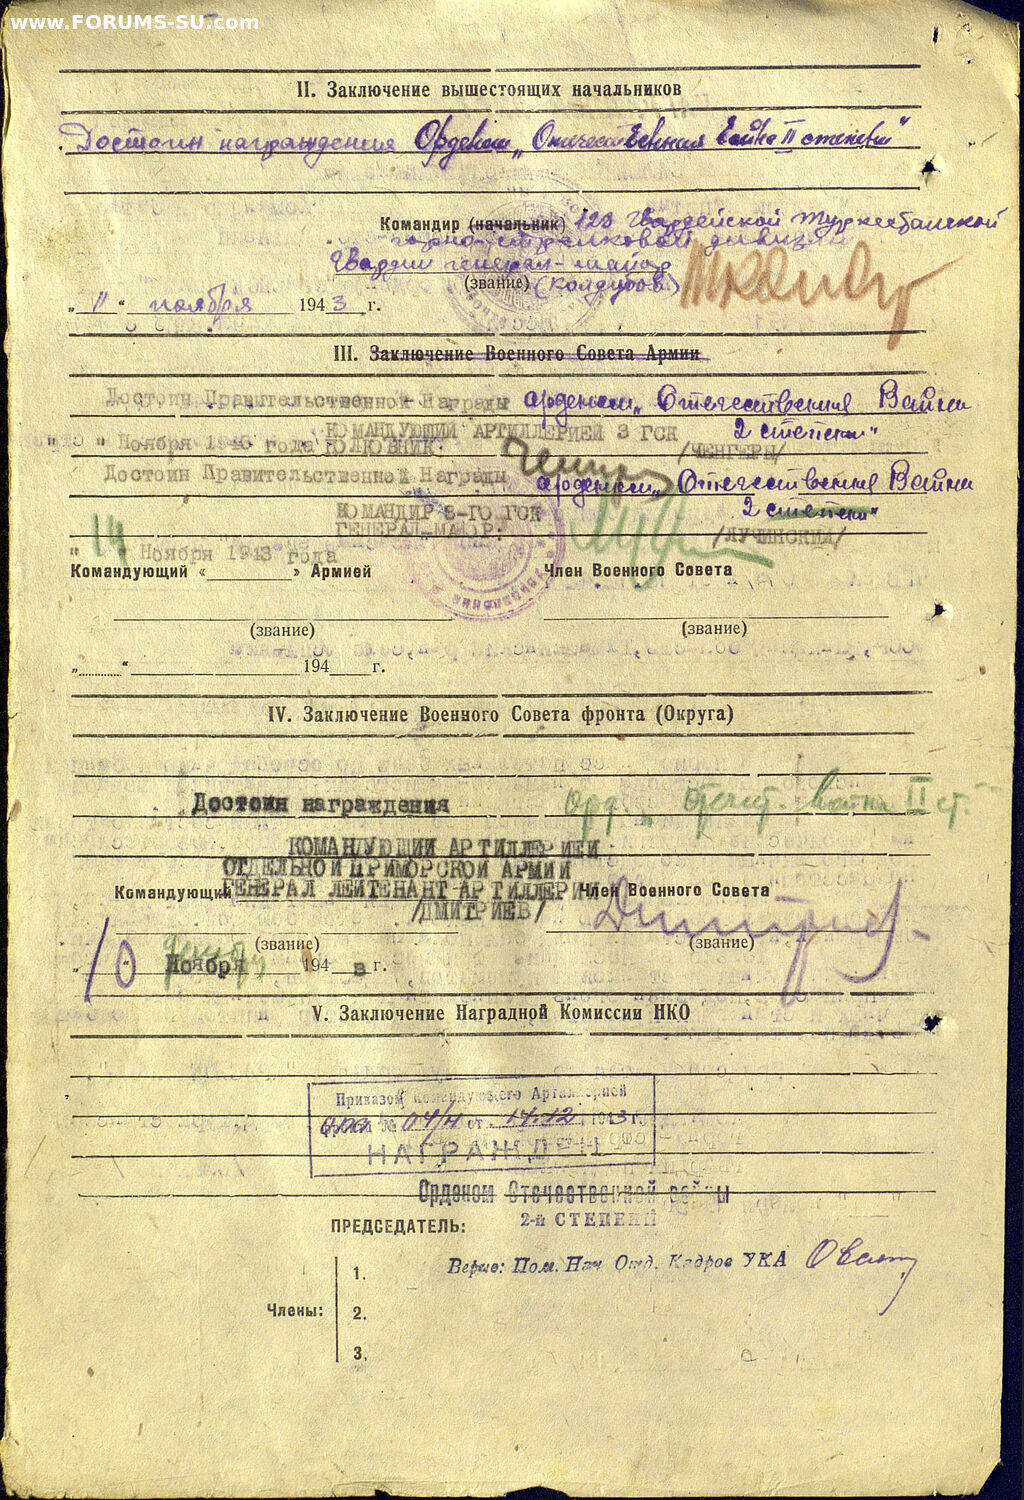 www.FORUMS-SU.com
II. Заключение вышестоящих начальников
Достоин награждения Орденом „Отечественная Война II степени"
Командир (начальник) 128 Гвардейской Туркестанской
горно-стрелковой дивизии
Гвардии генерал-майор
(звание) (Колдубов)
„11" ноября 1943 г.
III. Заключение Военного Совета Армии
Достоин Правительственной Награды орденом „Отечественная Война
2 степени"
КОМАНДУЮЩИЙ АРТИЛЛЕРИЕЙ 3 ГСК
" " Ноября 1943 года ПОЛКОВНИК: /ЧЕНГЕРЫ/
Достоин Правительственной Награды орденом „Отечественная Война
2 степени"
КОМАНДИР 3-ГО ГСК
ГЕНЕРАЛ-МАЙОР: /ЛУЧИНСКИЙ/
"14" Ноября 1943 года
Командующий «                » Армией Член Военного Совета
(звание) (звание)
„        " 194   г.
IV. Заключение Военного Совета фронта (Округа)
Достоин награждения орд. Отечест. Война II ст."
КОМАНДУЮЩИЙ АРТИЛЛЕРИЕЙ
ОТДЕЛЬНОЙ ПРИМОРСКОЙ АРМИИ
Командующий ГЕНЕРАЛ ЛЕЙТЕНАНТ АРТИЛЛЕРИИ Член Военного Совета
/ДМИТРИЕВ/
(звание) (звание)
„10" Ноября 194 г.
V. Заключение Наградной Комиссии НКО
Приказом Командующего Артиллерией
№ 04/н от 17.12 1943 г.
НАГРАЖДЕН
Орденом Отечественной войны
2-й СТЕПЕНИ
ПРЕДСЕДАТЕЛЬ:
Верно: Пом. Нач Отд. Кадров УКА
Члены:
1.
2.
3.